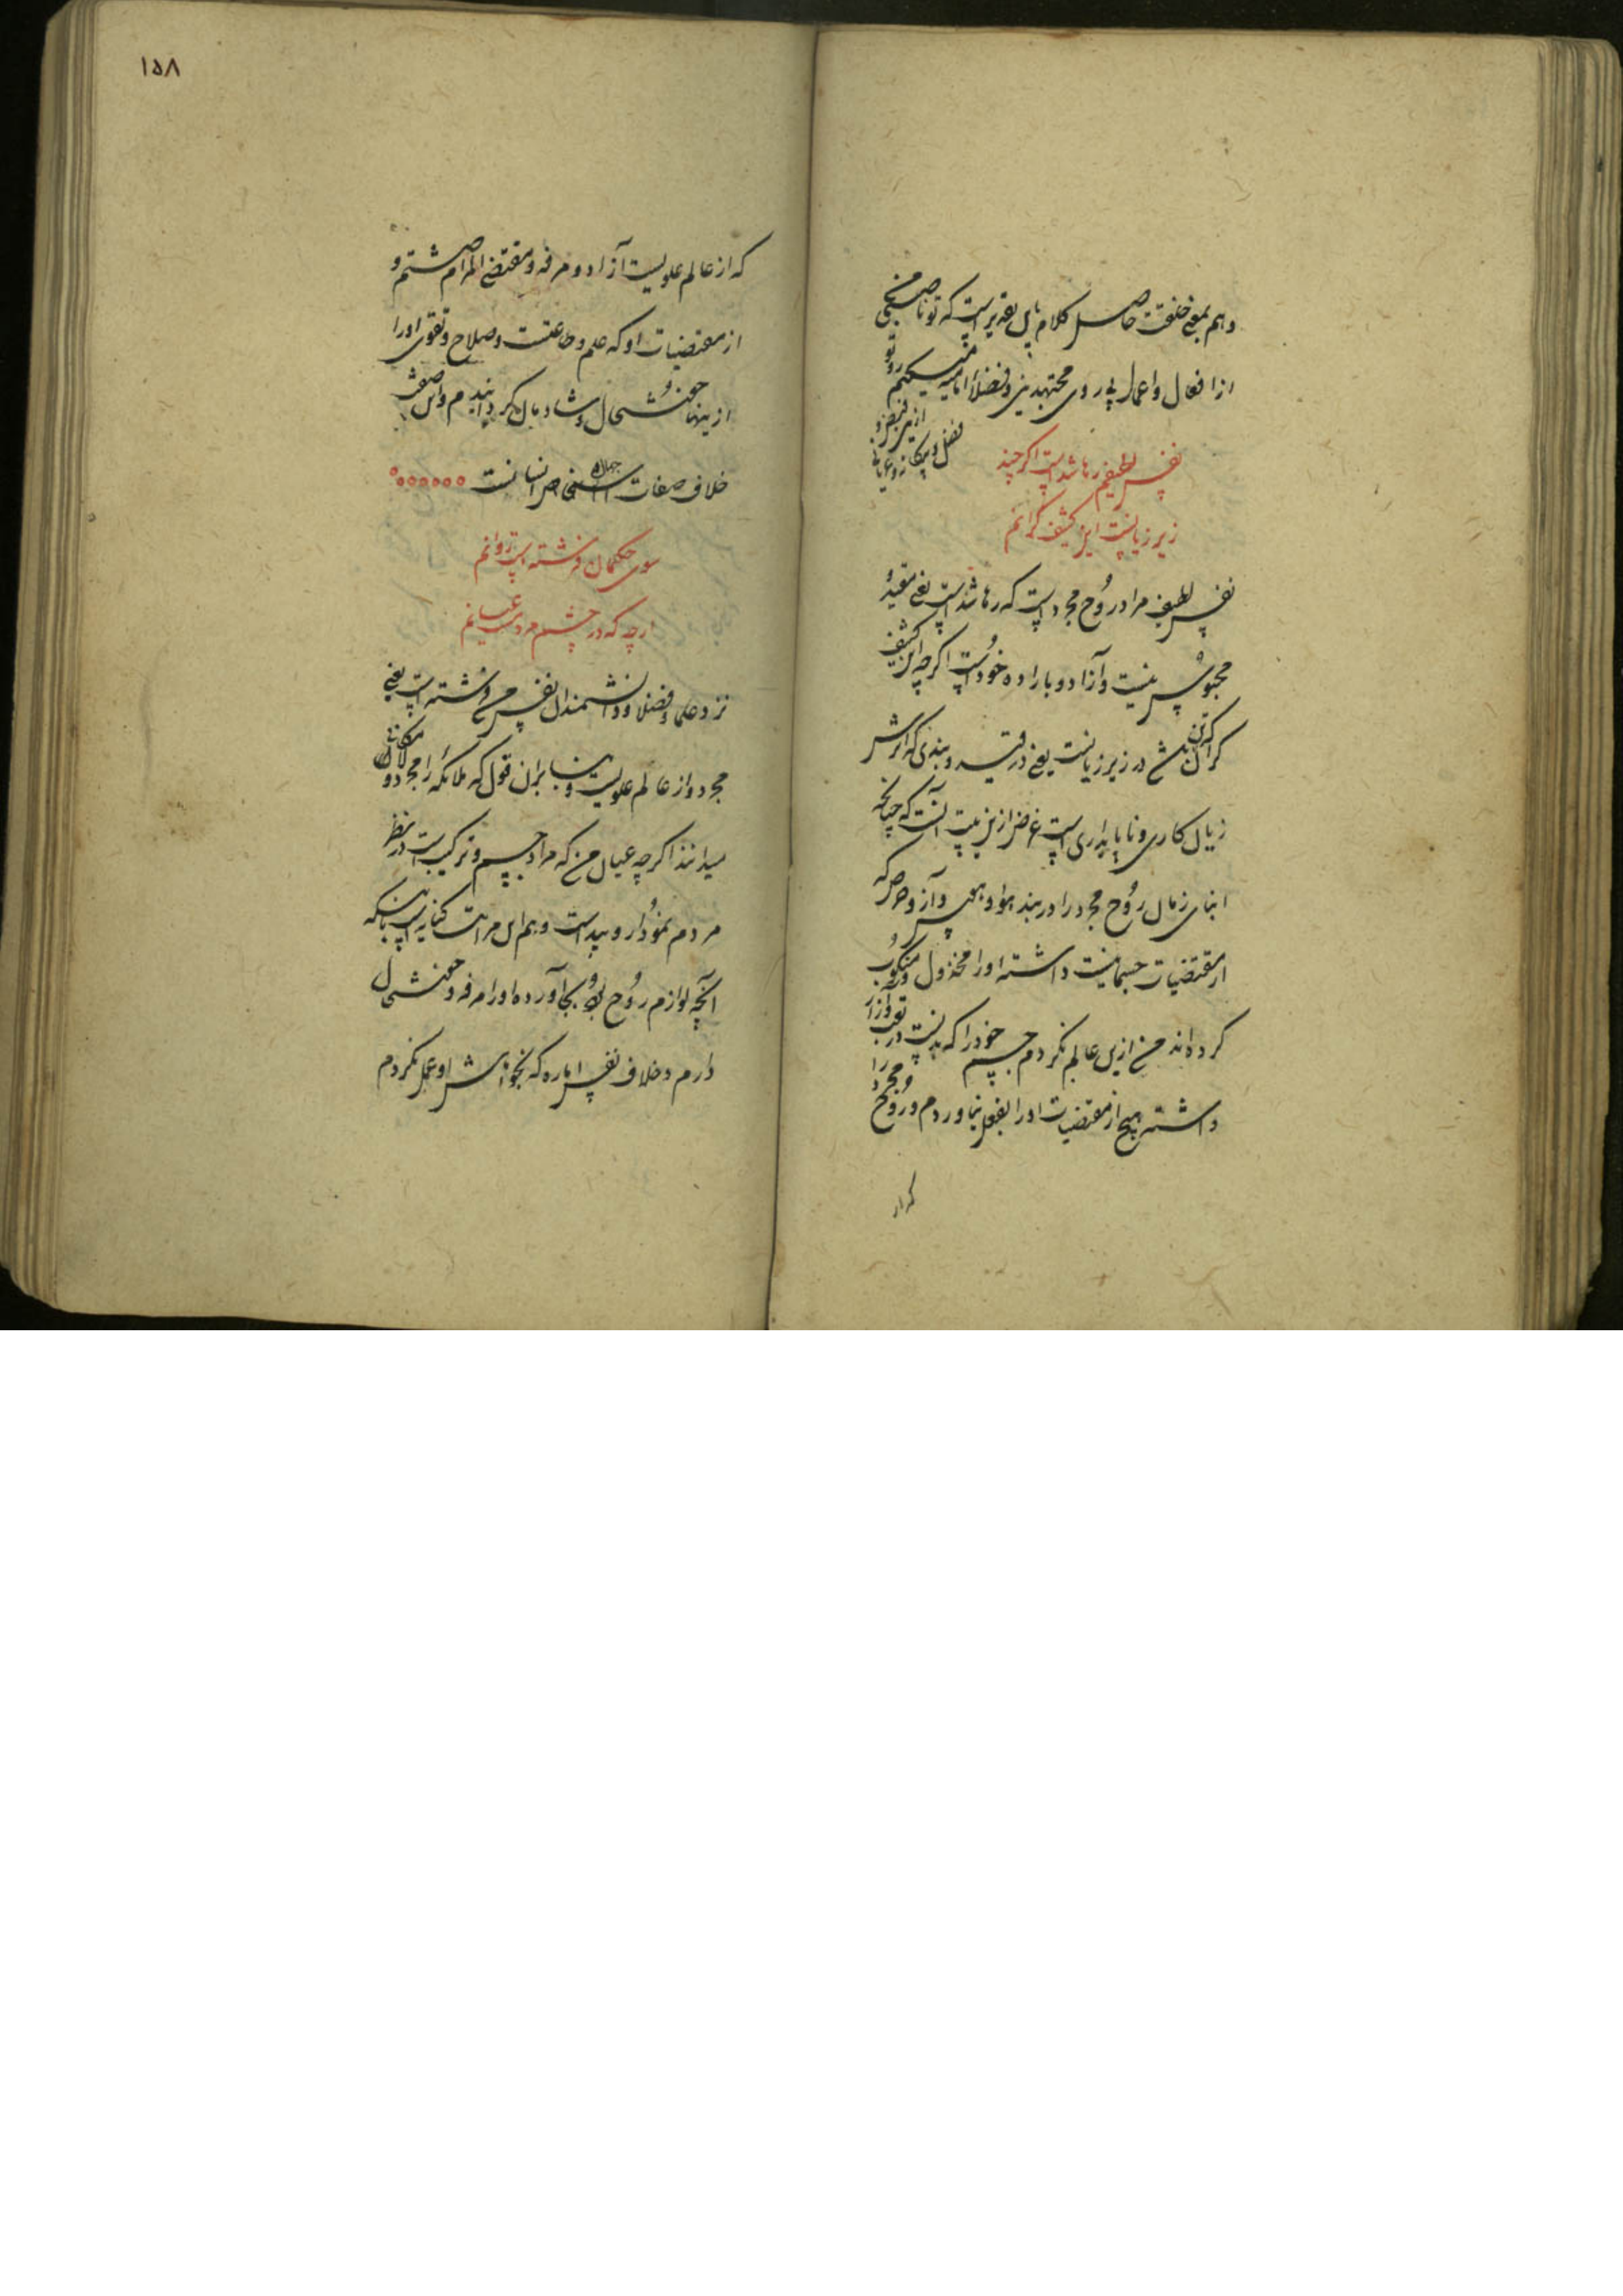 وهم بمعنی خلقت حاصل کلام باین تقدیر است که تو ناصبی
از افعال و اعمال پی روی مجتهدین و فضلاء امامیه میکنیم
نفس لطیفم رها شده است اگر چند
زیر زیانست این کثیف گرانم
نفس لطیف مراد روح مجرد است که رها شده است یعنی مقید و
محبوس نیست و آزاد و باراده خود است اگرچه این کثیف
گران که تن باشد در زیر زیانست یعنی در قید و بندی که اثرش
زیان کاری و ناپایداری است غرض ازین بیت آنست که چنانچه
ابنای زمان روح مجرد را در بند هوا و هوس و آز و حرص که
از مقتضیات جسمانیت داشته او را مخذول و منکوب
کرده‌اند من ازین عالم نکردم جسم خود را که بدنست در تعب و آزار
داشته هیچ از مقتضیات او را بفعل نیاوردم و روح مجرد را
که از
۱۵۸
که از عالم علویست آزاد و مرفه و مقتضی المرام داشتم و
از مقتضیات او که علم و طاعتست و صلاح و تقوی او را
ازینها خوشحال و شادمان گردانیدم و این صفت
خلاف صفات جهلاء اشخاص انسانست
سوی حکیمان فرشته است روانم
ارچه که در چشم مردمست عیانم
نزد علما و فضلا و دانشمندان نفس من فرشته است یعنی
مجرد و از عالم علویست و بنا بران قول که ملائکه را مجرد و لامکان
میدانند اگرچه عیان من که مراد جسم و ترکیب است در نظر
مردم نمودار و پیداست و هم این مراتب کنایه است بانیکه
آنچه لوازم روح بود بجا آورده او را مرفه و خوشحال
دارم و خلاف نفس اماره که بخواهش او عمل نکردم